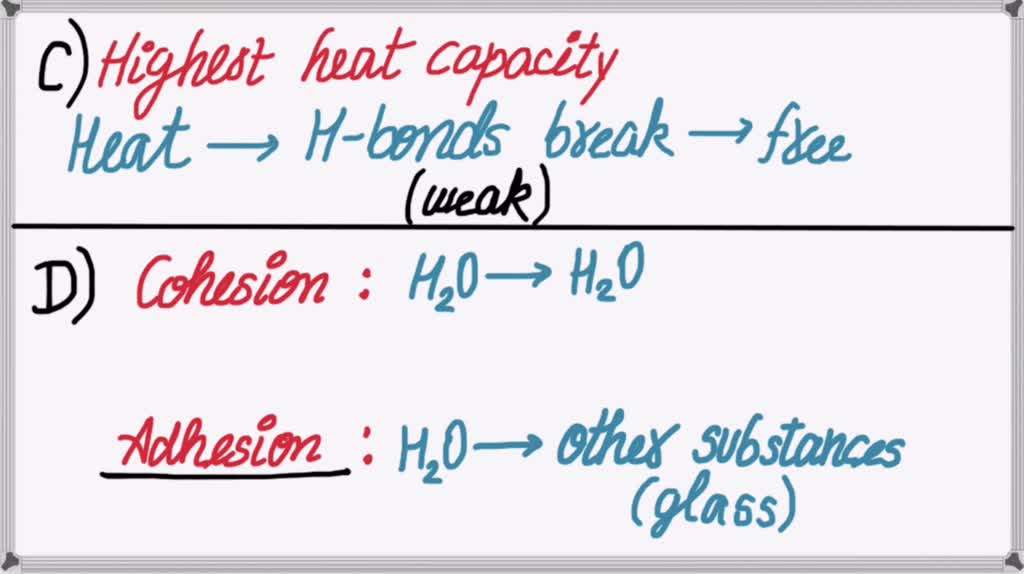 C) Highest heat capacity
Heat → H-bonds break → free
(weak)
D) Cohesion : H₂O → H₂O
Adhesion : H₂O → other substances
(glass)